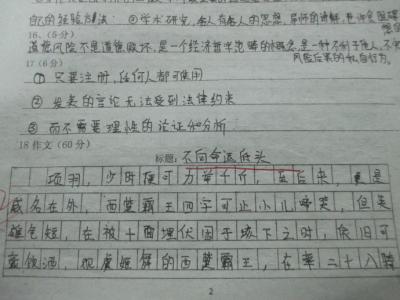 自己的经验方法；③学术研究，会人有各人的思想，导师的讲解，也许会阻碍
16、（6分）
道德风险不是道德败坏，是一个经济哲学范畴的概念，是一种不利于他人，不
风险后果的自私行为。
17（6分）
①只要注册，任何人都可使用
②发表的言论无法受到法律约束
③而不需要理性的论证和分析
18 作文（60分）
标题：不向命运低头
项羽，少时便可力举千斤，至后来，更是
威名在外，西楚霸王四字可止小儿啼哭，但英
雄气短，在被十面埋伏困于垓下之时，依旧可
豪饮酒，观虞姬舞的西楚霸王，在率二十八骑
2